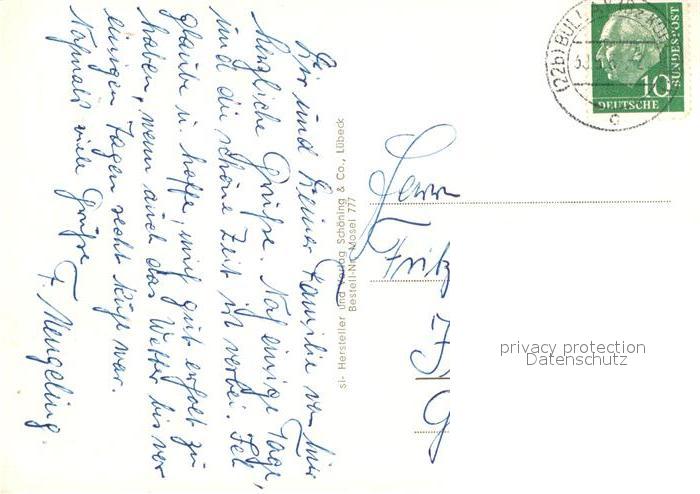 Dir und Deiner Familie von hier
herzliche Grüße. Noch einige Tage,
und die schöne Zeit ist vorbei. Ich
glaube u. hoffe, mich gut erholt zu
haben, wenn auch das Wetter bis vor
einigen Tagen recht kühl war.
Nochmals viele Grüße
F. Mengeling.
si- Hersteller und Verlag Schöning & Co., Lübeck
Bestell-Nr. Mosel 777
(22b) BULLAY
10
DEUTSCHE
BUNDESPOST
Herrn
Fritz
privacy protection
Datenschutz